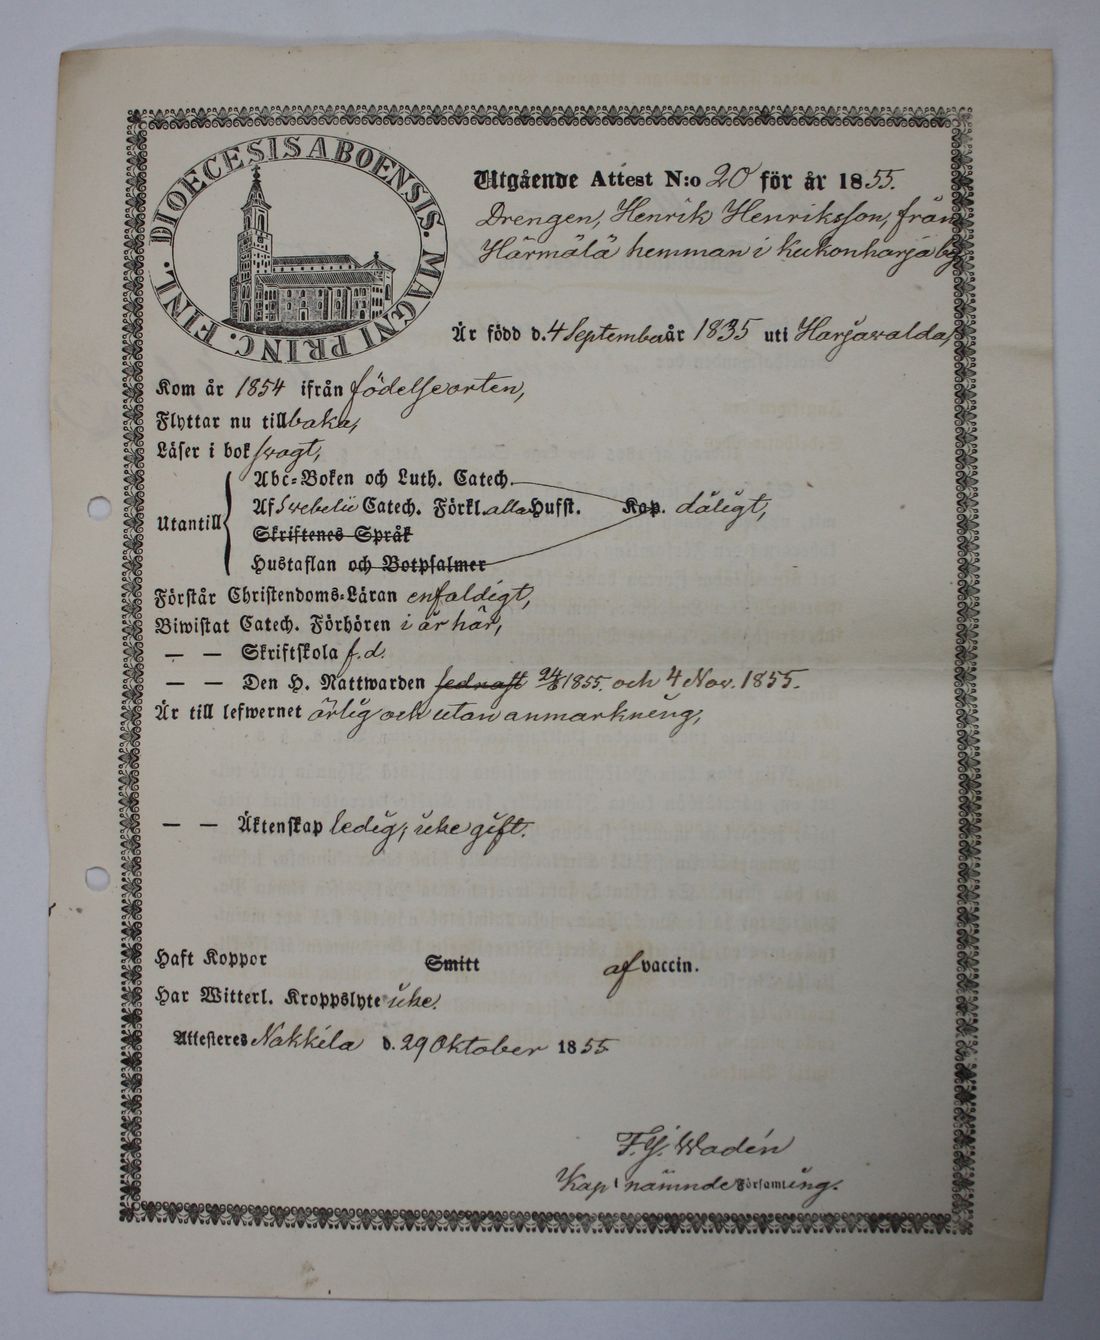 DIOECESIS ABOENSIS. MAGNI PRINC. FINL.
Utgående Attest N:o 20 för år 1855.
Drengen, Henrik Henriksson, från
Härmälä hemman i Kukonharja by
Är född d. 4 September år 1835 uti Harjawalda,
Kom år 1854 ifrån födelseorten,
Flyttar nu tillbaka,
Läser i bok swagt,
Abc-Boken och Luth. Catech.
Utantill Af Swebelii Catech. Förkl. alla Hufst. Kap. dåligt,
Skriftenes Språk
Hustaflan och Botpsalmer
Förstår Christendoms-Läran enfaldigt,
Biwistat Catech. Förhören i år här,
— — Skriftskola f.d.
— — Den H. Nattwarden sednast 24/6 1855. och 4 Nov. 1855.
Är till lefwernet ärlig och utan anmärkning,
— — Äktenskap ledig, icke gift.
Haft Koppor Smitt af vaccin.
Har Witterl. Kroppslyte icke.
Attesteres Nakkila d. 29 Oktober 1855
Wadén
Kap i nämnde Församling.